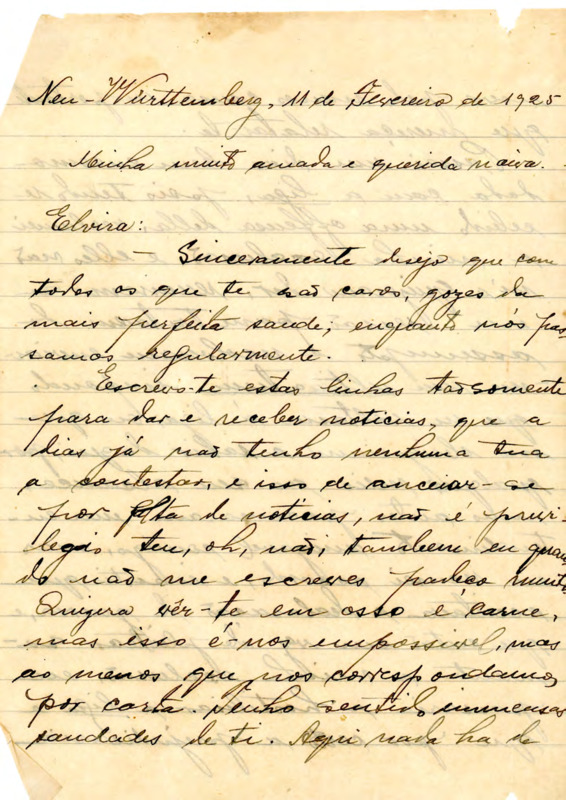 Neu-Württemberg, 11 de Fevereiro de 1925
Minha muito amada e querida noiva.
Elvira:
- Sinceramente desejo que com
todos os que te são caros, gozes da
mais perfeita saude; enquanto nós pas-
samos regularmente.
Escrevo-te estas linhas tãosomente
para dar e receber noticias, que a
dias já não tenho nenhuma tua
a contestar, e isso de anceiar-se
por falta de noticias, não é previ-
legio teu, oh, não, tambem eu quan-
do não me escreves padeço muito.
Quizera vêr-te em osso e carne,
mas isso é-nos empossivel, mas
ao menos que nos correspondamos
por carta. Tenho sentido immensas
saudades de ti. Aqui nada ha de